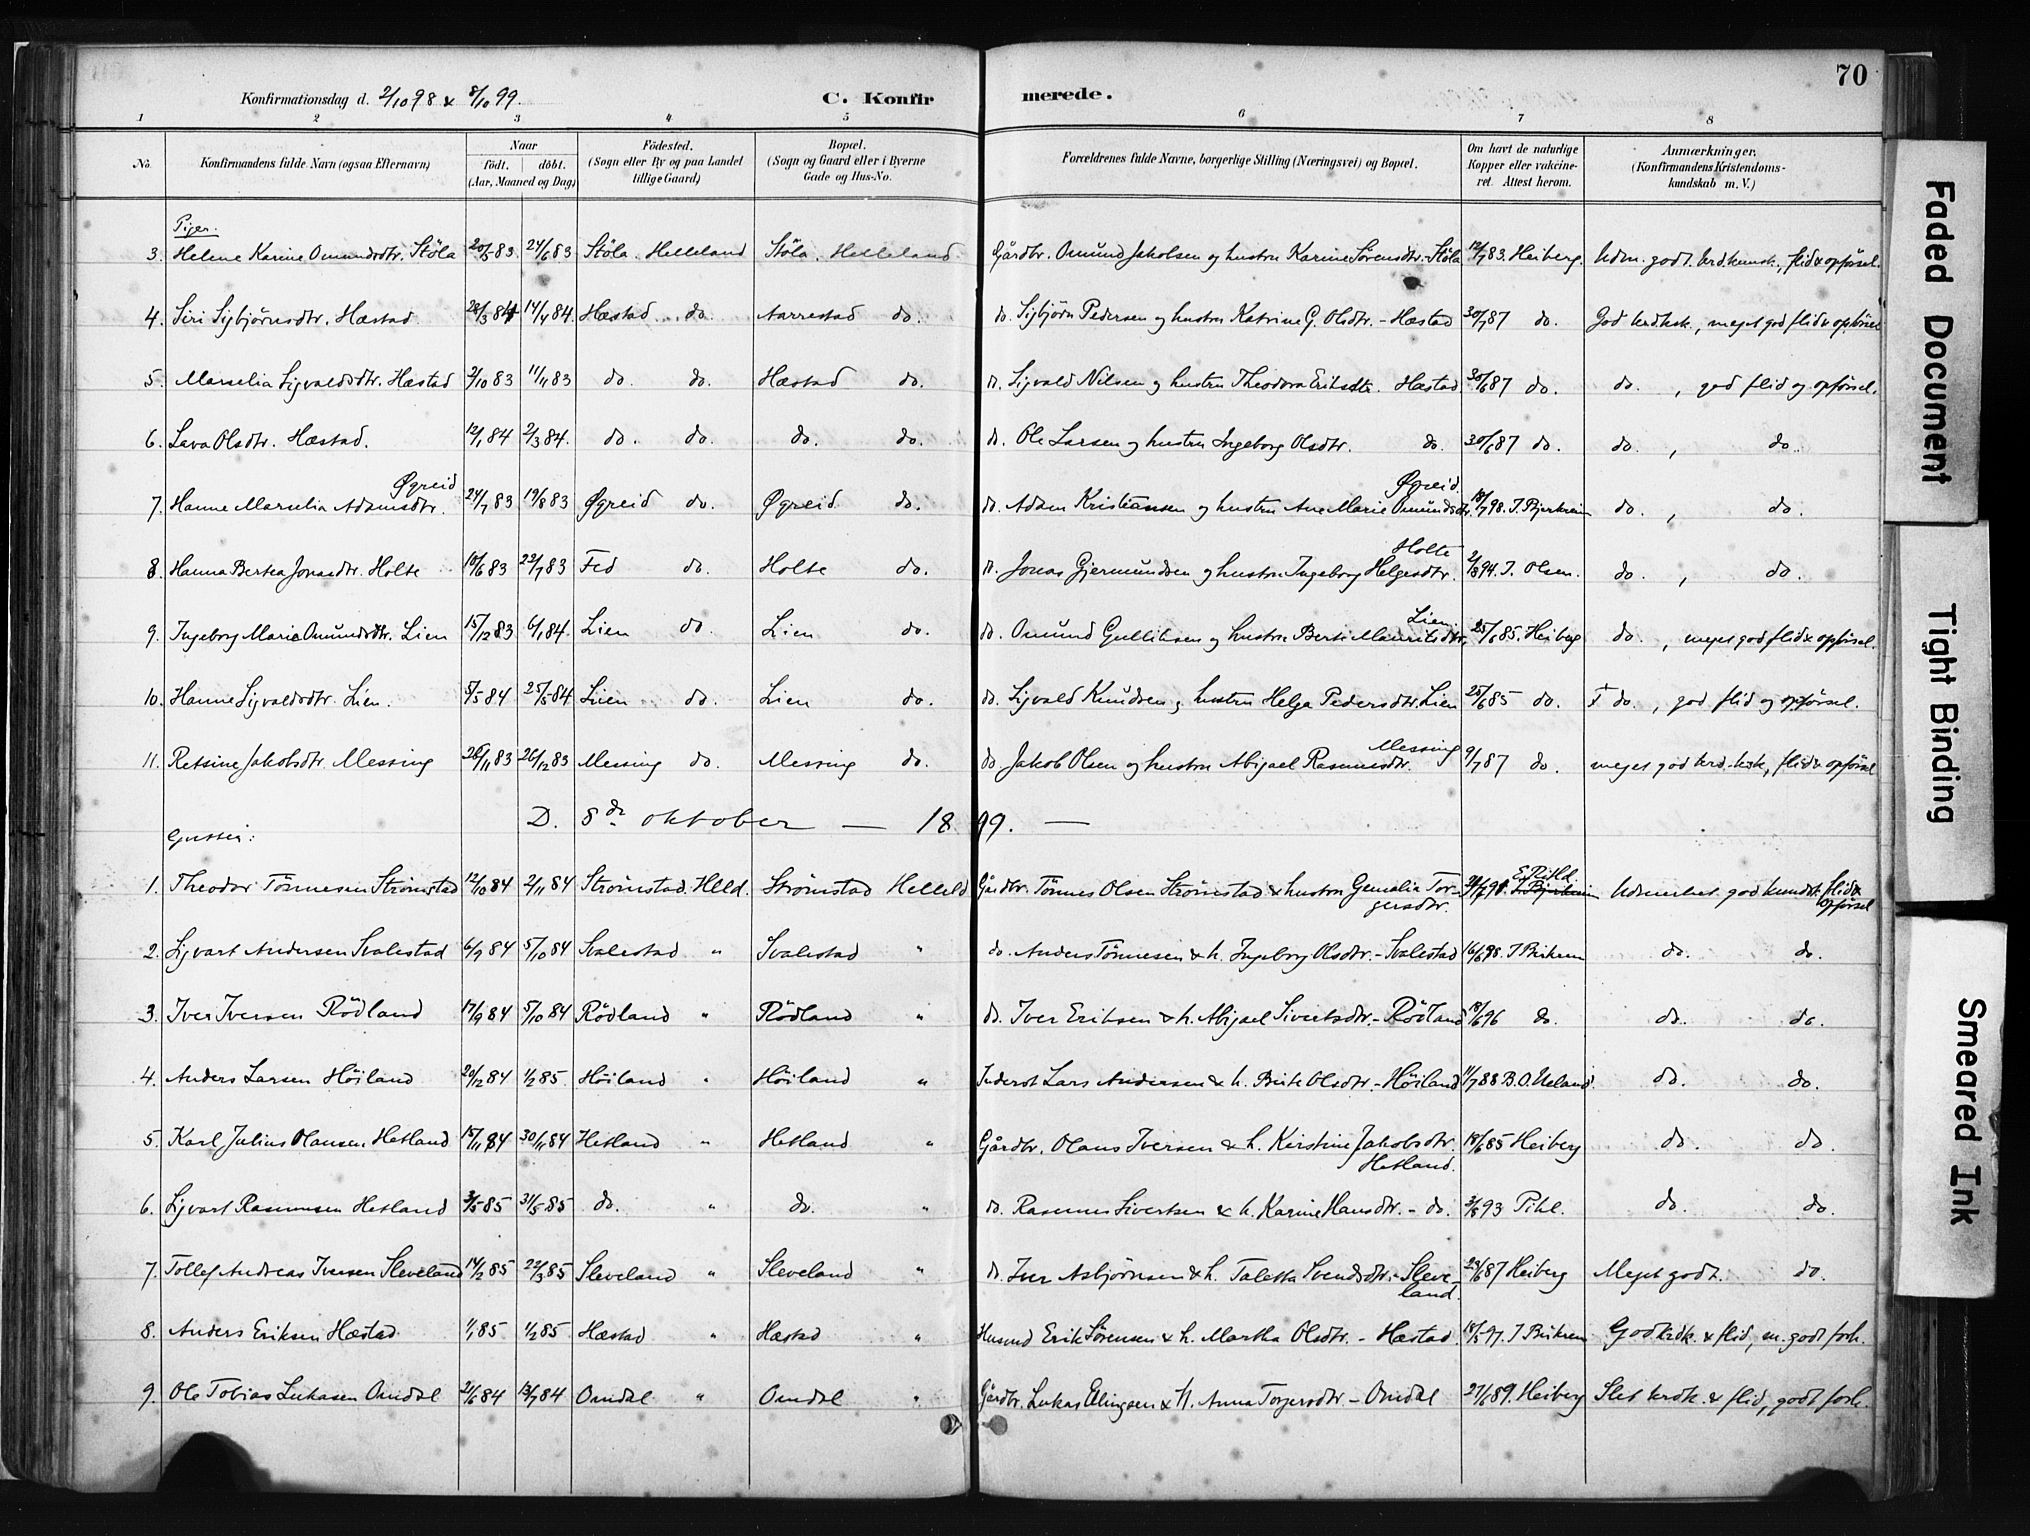 70
Konfirmationsdag d. 2/10 98 & 8/10 99.
C. Konfirmerede.
1 2 3 4 5 6 7 8
No. Konfirmandens fulde Navn (ogsaa Efternavn) Naar født. døbt. (Aar, Maaned og Dag) Fødested. (Sogn eller By og paa Landet tillige Gaard) Bopæl. (Sogn og Gaard eller i Byerne Gade og Hus-No. Forældrenes fulde Navne, borgerlige Stilling (Næringsvei) og Bopæl. Om havt de naturlige Kopper eller vakcineret. Attest herom. Anmærkninger. (Konfirmandens Kristendomskundskab m. V.)
Piger.
3. Helene Karine Omundsdtr. Støla 20/5 83 24/6 83 Støla Helleland Støla Helleland Gårdbr. Omund Jakobsen og hustru Karine Sørensdtr. Støla 12/7 83. Heiberg. Udm. godt krd.kunsk., flid & opførsel.
4. Siri Sigbjørnsdtr. Hæstad 28/3 84 14/4 84. Hæstad do. Aarrestad do. do. Sigbjørn Pedersen og hustru Katrine G. Olsdtr. - Hæstad 30/7 87 do. God krd.ksk., meget god flid & opførsel
5. Marselia Sigvaldsdtr. Hæstad 2/10 83 11/11 83 do. do. Hæstad do. d. Sigvald Nilsen og hustru Theodora Eriksdtr. Hæstad. 30/6 87 do. do. , god flid og opførsel.
6. Lava Olsdtr. Hæstad. 12/1 84 2/3 84. do. do. do. do. d. Ole Larsen og hustru Ingeborg Olsdtr. do. 30/6 87 do. do. , do.
7. Hanne Marselia Adamsdtr. Øgreid 24/7 83 19/8 83 Øgreid do. Øgreid do. do. Adam Kristiansen og hustru Ane Marie Omundsdtr. Øgreid. 18/7 98. J. Bjerkreim do. , do.
8. Hanna Bertea Jonasdtr. Holte 10/6 83 22/7 83 Fed do. Holte do. d. Jonas Gjermundsen og hustru Ingeborg Helgesdtr. Holte 2/8 94. T. Olsen. do. , do.
9. Ingeborg Marie Omundsdtr. Lien 15/12 83 6/1 84. Lien do. Lien do. do. Omund Gulliksen og hustru Berte Mauritsdtr. Lien 25/6 85. Heiberg do. , meget god flid & opførsel.
10. Hanne Sigvaldsdtr. Lien. 5/5 84 25/5 84 Lien do. Lien do. do. Sigvald Knudsen og hustru Helga Pedersdtr. Lien 25/6 85 do. do. , god flid og opførsel.
11. Retsine Jakobsdtr. Messing 26/11 83 26/12 83 Messing do. Messing do. do. Jakob Olsen og hustru Abigael Rasmusdtr. Messing 9/7 87 do. meget god krd.-ksk, flid & opførsel
D. 8de oktober — 1899. —
Gutter:
1. Theodor Tönnesen Strömstad 12/10 84 2/11 84 Strömstad. Helld. Strömstad Helleld Gårdbr. Tönnes Olsen Strömstad & hustru Gemalia Torgersdtr. Udmerket god kundsk. flid & opførsel
2. Sigvart Andersen Svalestad 6/9 84 5/10 84 Svalestad " Svalestad " do. Anders Tönnesen & h. Ingeborg Olsdtr. - Svalestad 16/6 98. J Birkrem do. do.
3. Iver Iversen Rödland 17/9 84 5/10 84 Rödland " Rödland " do. Iver Eriksen & h. Abigael Sivertsdtr. - Rödland 18/6 96 do. do. do.
4. Anders Larsen Höiland 20/12 84 1/2 85 Höiland " Höiland " Inderst Lars Andersen & h. Berte Olsdtr. - Höiland 11/7 88 B.O. Ueland. do. do.
5. Karl Julius Olausen Hetland 15/11 84 30/11 84 Hetland " Hetland " Gårdbr. Olaus Iversen & h. Kirstine Jakobsdtr. Hetland. 18/6 85 Heiberg do. do.
6. Sigvart Rasmusen Hetland 3/5 85 31/5 85 do. " do. " do. Rasmus Sivertsen & h. Karine Hansdtr. - do. 3/8 93 Pihl. do. do.
7. Tollef Andreas Iversen Sleveland 14/2 85 22/3 85 Sleveland " Sleveland " do. Iver Asbjørnsen & h. Taletta Svendsdtr. - Sleveland. 23/6 87 Heiberg Meget godt. do.
8. Anders Eriksen Hæstad 1/1 85 1/2 85 Hæstad " Hæstad " Husmd Erik Sørensen & h. Martha Olsdtr. - Hæstad. 18/5 97. J Birkrem God krdk. & flid, m. godt forh.
9. Ole Tobias Lukasen Omdal 21/6 84 13/7 84 Omdal " Omdal " Gårdbr. Lukas Elingsen & h. Anna Torgersdtr. - Omdal 27/6 89. Heiberg Slet krdk. & flid, godt forh.
Faded Document
Tight Binding
Smeared Ink